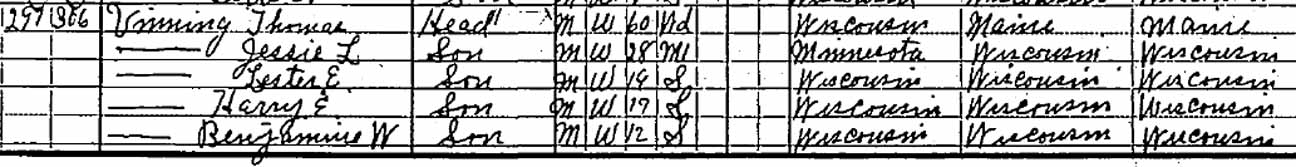 297 366 Vinning Thomas Head M W 60 Wd Wisconsin Maine Maine
—— Jessie L Son M W 28 M1 Minnesota Wisconsin Wisconsin
—— Lester E Son M W 19 S Wisconsin Wisconsin Wisconsin
—— Harry E Son M W 17 S Wisconsin Wisconsin Wisconsin
—— Benjamine W Son M W 12 S Wisconsin Wisconsin Wisconsin